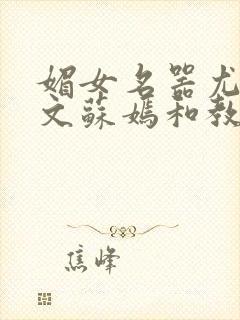 媚女名器尤
文蘇媽和教
焦峰